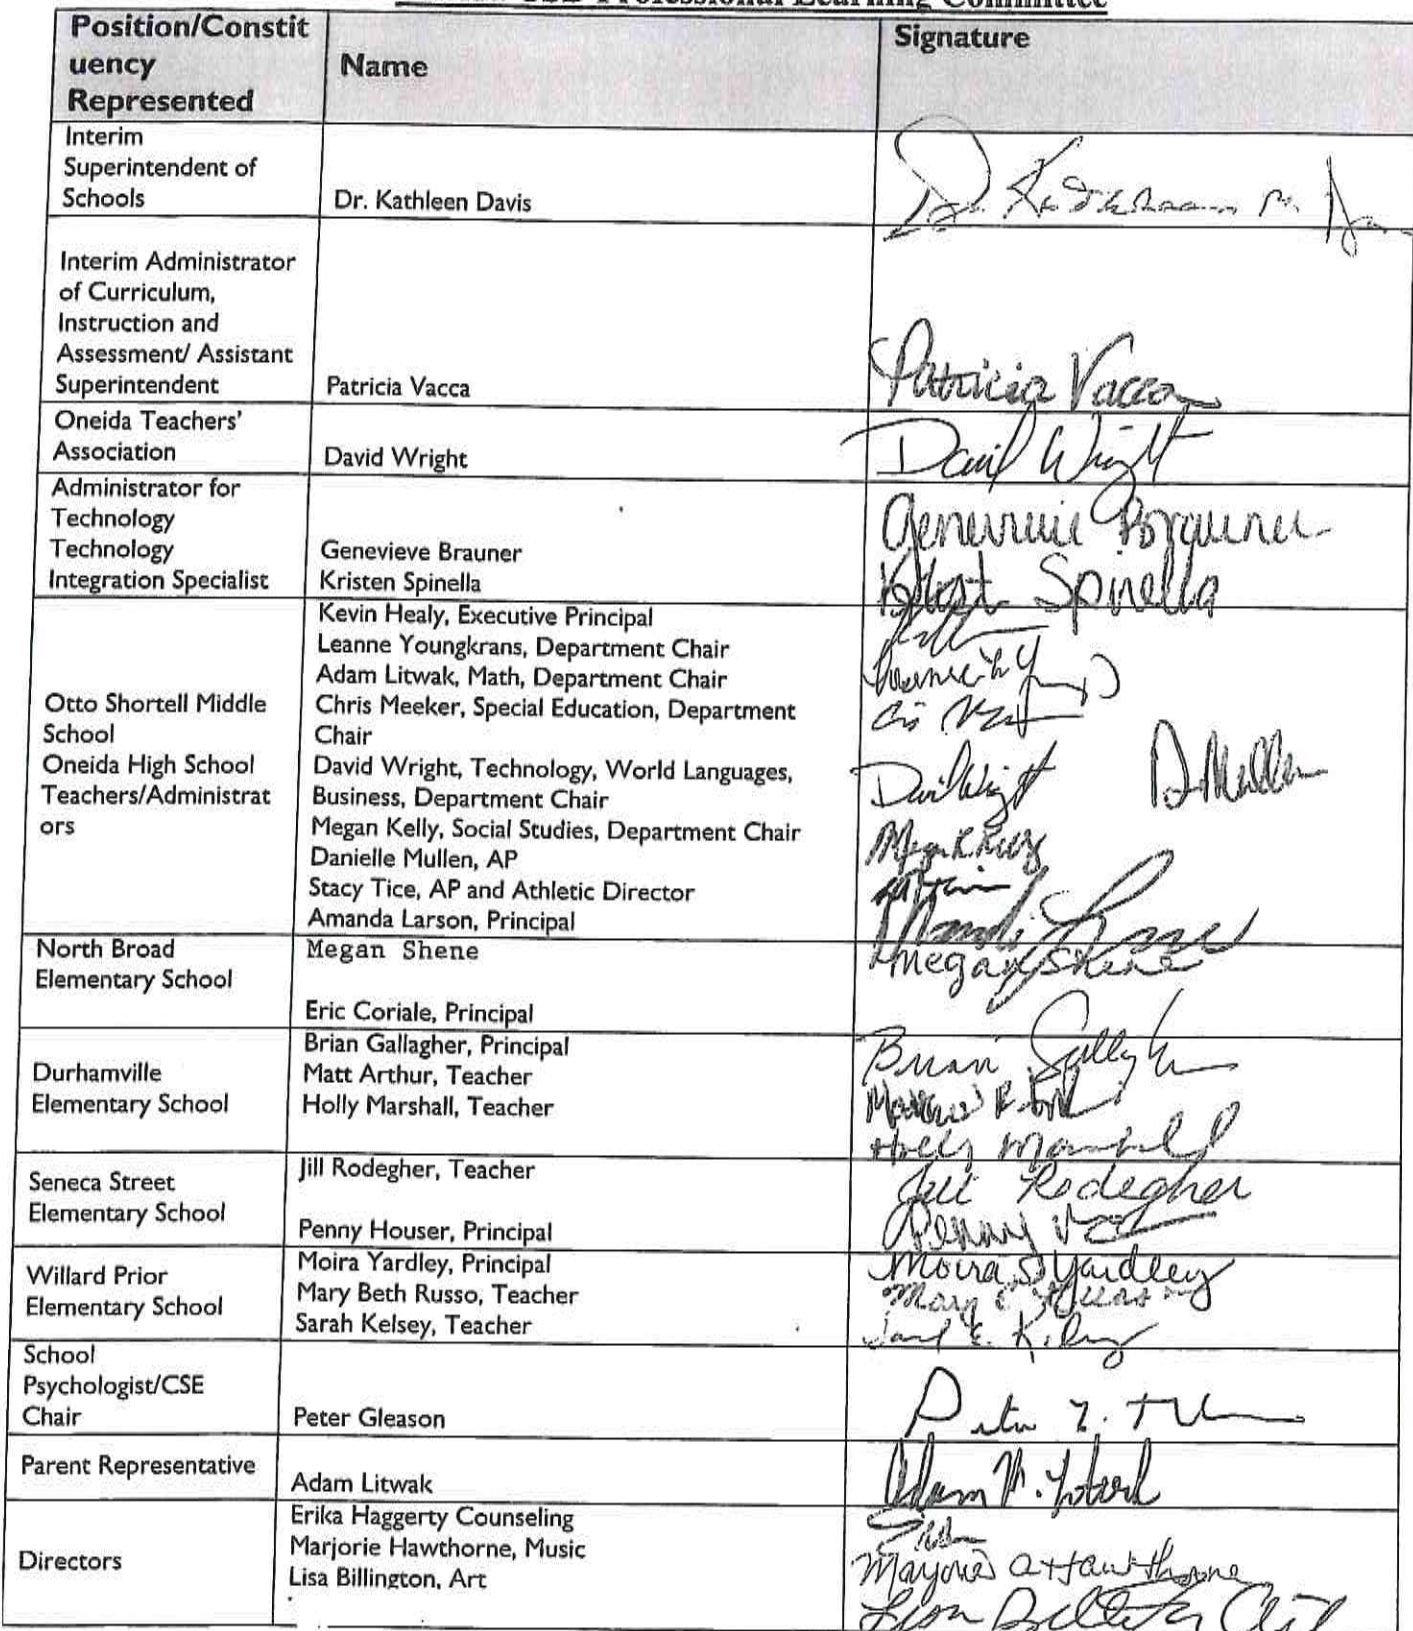 Professional Learning Committee
Position/Constit
uency
Represented
Name
Signature
Interim
Superintendent of
Schools
Dr. Kathleen Davis
Interim Administrator
of Curriculum,
Instruction and
Assessment/ Assistant
Superintendent
Patricia Vacca
Patricia Vacca
Oneida Teachers'
Association
David Wright
David Wright
Administrator for
Technology
Technology
Integration Specialist
Genevieve Brauner
Kristen Spinella
Genevieve Brauner
Spinella
Otto Shortell Middle
School
Oneida High School
Teachers/Administrat
ors
Kevin Healy, Executive Principal
Leanne Youngkrans, Department Chair
Adam Litwak, Math, Department Chair
Chris Meeker, Special Education, Department
Chair
David Wright, Technology, World Languages,
Business, Department Chair
Megan Kelly, Social Studies, Department Chair
Danielle Mullen, AP
Stacy Tice, AP and Athletic Director
Amanda Larson, Principal
David Wright
D Mullen
North Broad
Elementary School
Megan Shene
Eric Coriale, Principal
Megan Shene
Durhamville
Elementary School
Brian Gallagher, Principal
Matt Arthur, Teacher
Holly Marshall, Teacher
Brian Gallagher
Holly Marshall
Seneca Street
Elementary School
Jill Rodegher, Teacher
Penny Houser, Principal
Jill Rodegher
Penny
Willard Prior
Elementary School
Moira Yardley, Principal
Mary Beth Russo, Teacher
Sarah Kelsey, Teacher
Moira S Yardley
School
Psychologist/CSE
Chair
Peter Gleason
Parent Representative
Adam Litwak
Adam
Directors
Erika Haggerty Counseling
Marjorie Hawthorne, Music
Lisa Billington, Art
Marjorie A Hawthorne